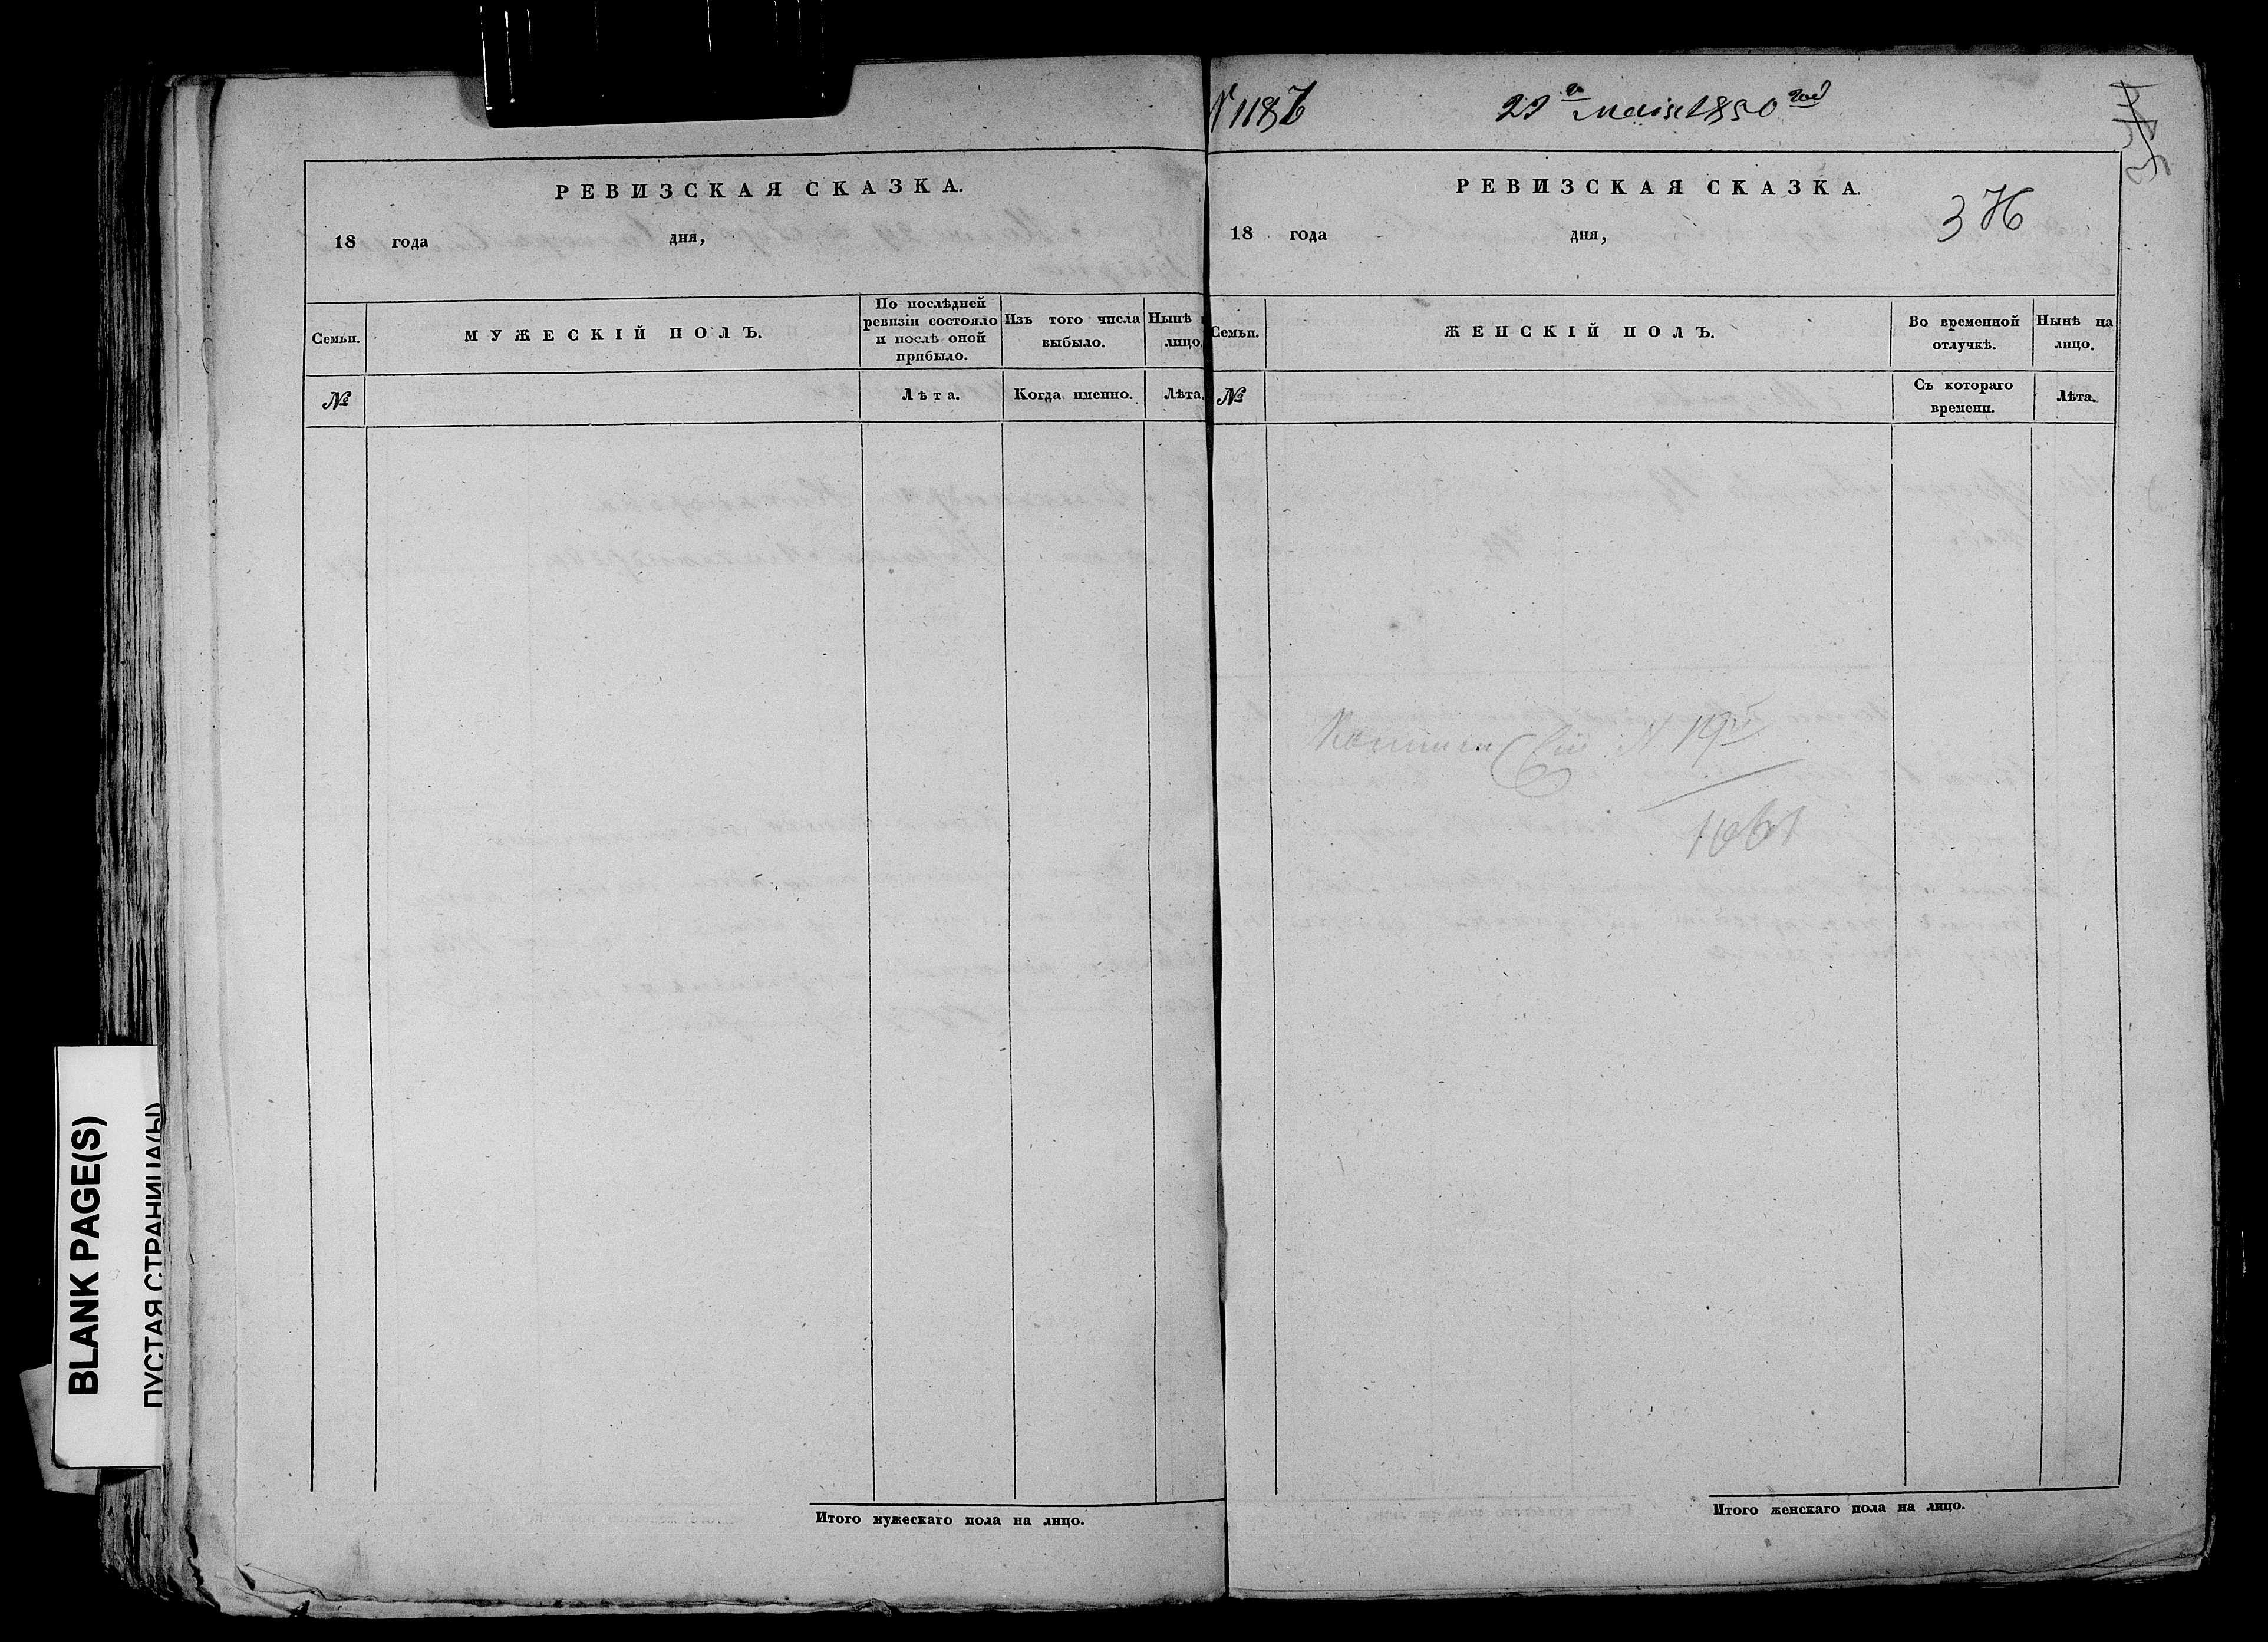 BLANK PAGE(S)
ПУСТАЯ СТРАНИЦА(Ы)
РЕВИЗСКАЯ СКАЗКА.
18 года дня,
Семьи.
МУЖЕСКІЙ ПОЛЪ.
По послѣдней
ревизіи состояло
и послѣ оной
прибыло.
Изъ того числа
выбыло.
Нынѣ
лицо.
№
Лѣта.
Когда именно.
Лѣта.
Итого мужескаго пола на лицо.
N 1187
22 мая 1850 год
РЕВИЗСКАЯ СКАЗКА.
18 года дня,
Семьи.
ЖЕНСКІЙ ПОЛЪ.
Во временной
отлучкѣ.
Нынѣ на
лицо.
№
Съ котораго
времени.
Лѣта.
Итого женскаго пола на лицо.